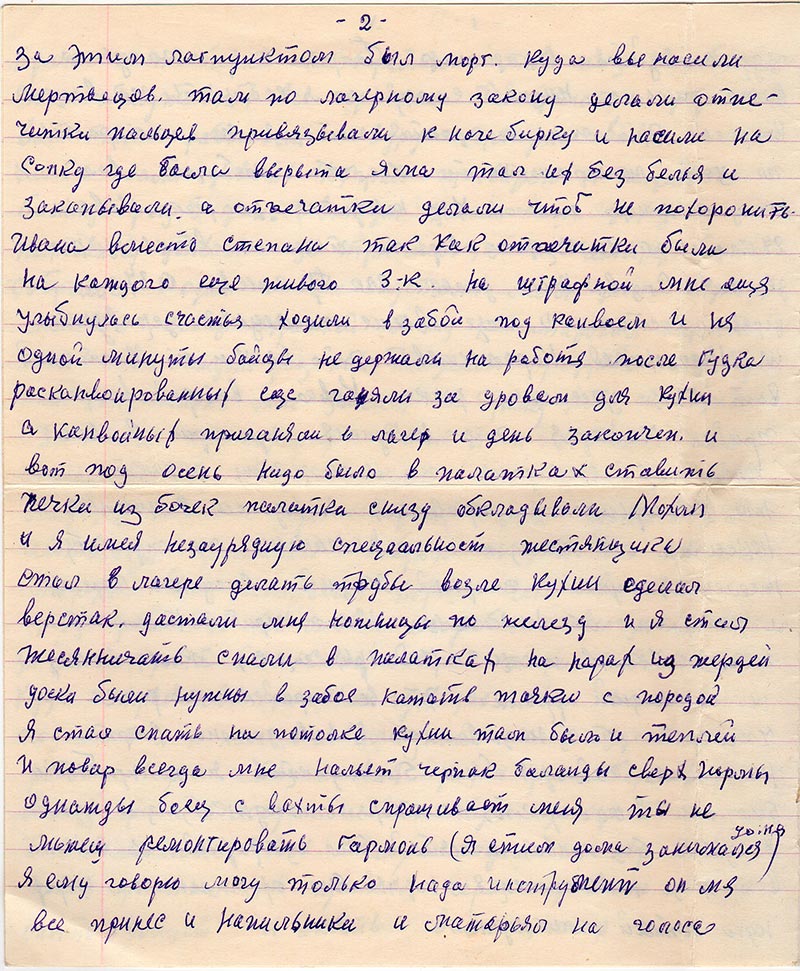 - 2 -
За этим лагпунктом был морг. куда вынасили
мертвецов. там по лагерному закону делали отпе-
чатки пальцев привязывали к ноге бирку и насили на
Сопку где была вырыта яма там их без белья и
закапывали. а отпечатки делали чтоб не похоронить.
Ивана вместо степана так как отпечатки были
на каждого еще живого З-К. На штрафной мне еще
улыбнулась счастья ходили в забой под канвоем и ни
одной минуты бойцы не держали на работе после гудка
расканвоированных еще гоняли за дровам для кухни
а канвойных пригоняли в лагер и день закончен. и
вот под осень надо было в палатках ставить
печки из бочек палатки снизу обкладывали Мохом
и я имея незаурядную специальност жестянщика
стал в лагере делать трубы возле кухни сделал
верстак. дастали мне ножницы по железу и я стал
жесянничать спали в палатках на нарах из жердей
доски были нужны в забое катать тачки с породой
Я стал спать на потолке кухни там было и теплей
И повар всегда мне нальет черпак баланды сверх нормы
Однажды боец с вахты спрашивает меня ты не
можеш ремонтировать гармонь (Я етим дома занимался)
дома
Я ему говорю могу только нада инструмент он мя
все принес и напильники и матарьял на голоса